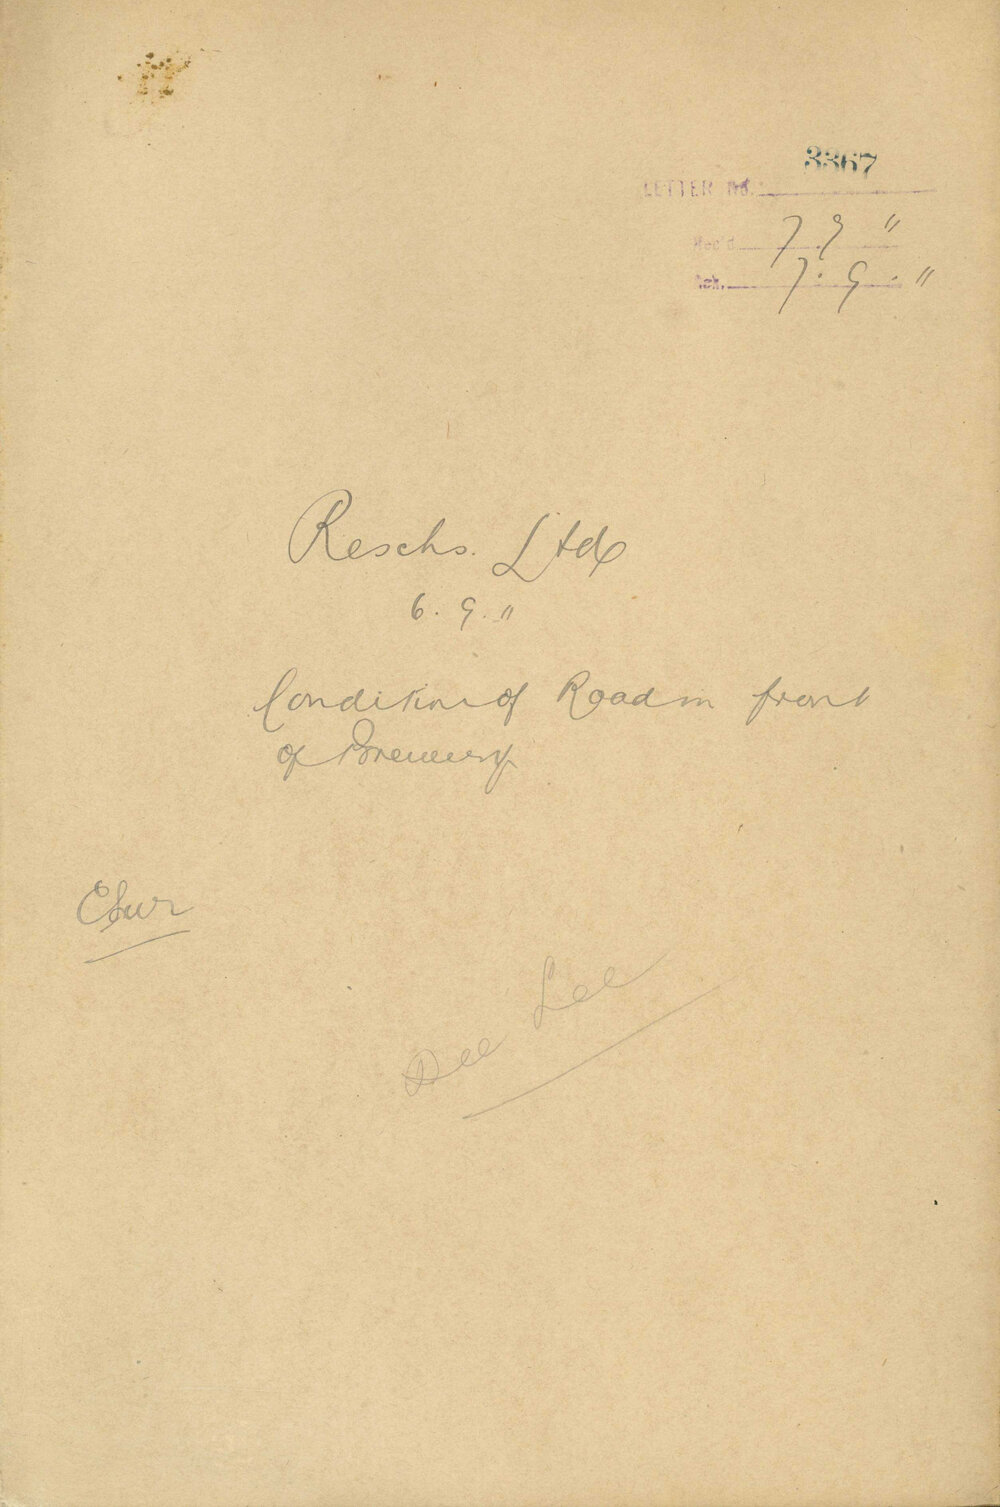 3367
LETTER No.
Rec'd 7 9 "
Ack. 7. 9. "
Reschs. Ltd
6. 9. "
Condition of Road in front
of Brewery
See Lee